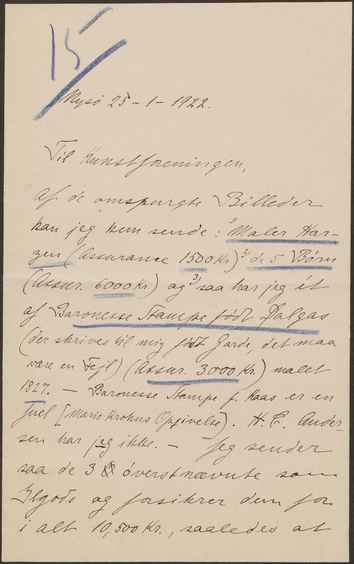 15
Nysø 25-1-1922.
Til Kunstforeningen,
af de omspurgte Billeder
kan jeg kun sende: 1) Maler Har-
zen (Assurance 1500 Kr) 2) de 5 Børn
(Assur. 6000 Kr) og 3) saa har jeg ét
af Baronesse Stampe født Dalgas
(der skrives til mig født Garde, det maa
være en Fejl) (Assur. 3000 Kr) malet
1827. — Baronesse Stampe f. Haas er en
Juel [Marie Krohns Opgivelse]. H. C. Ander-
sen har jeg ikke. — Jeg sender
saa de 3 øverstnævnte som
Ilgods og forsikrer dem for
i alt 10,500 Kr., saaledes at